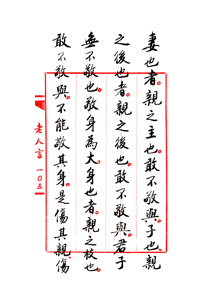 妻也者親之主也敢不敬與子也親
之後也者親之後也敢不敬與君子
無不敬也敬身為大身也者親之枝也
敢不敬與不能敬其身是傷其親傷
老人言 一〇五